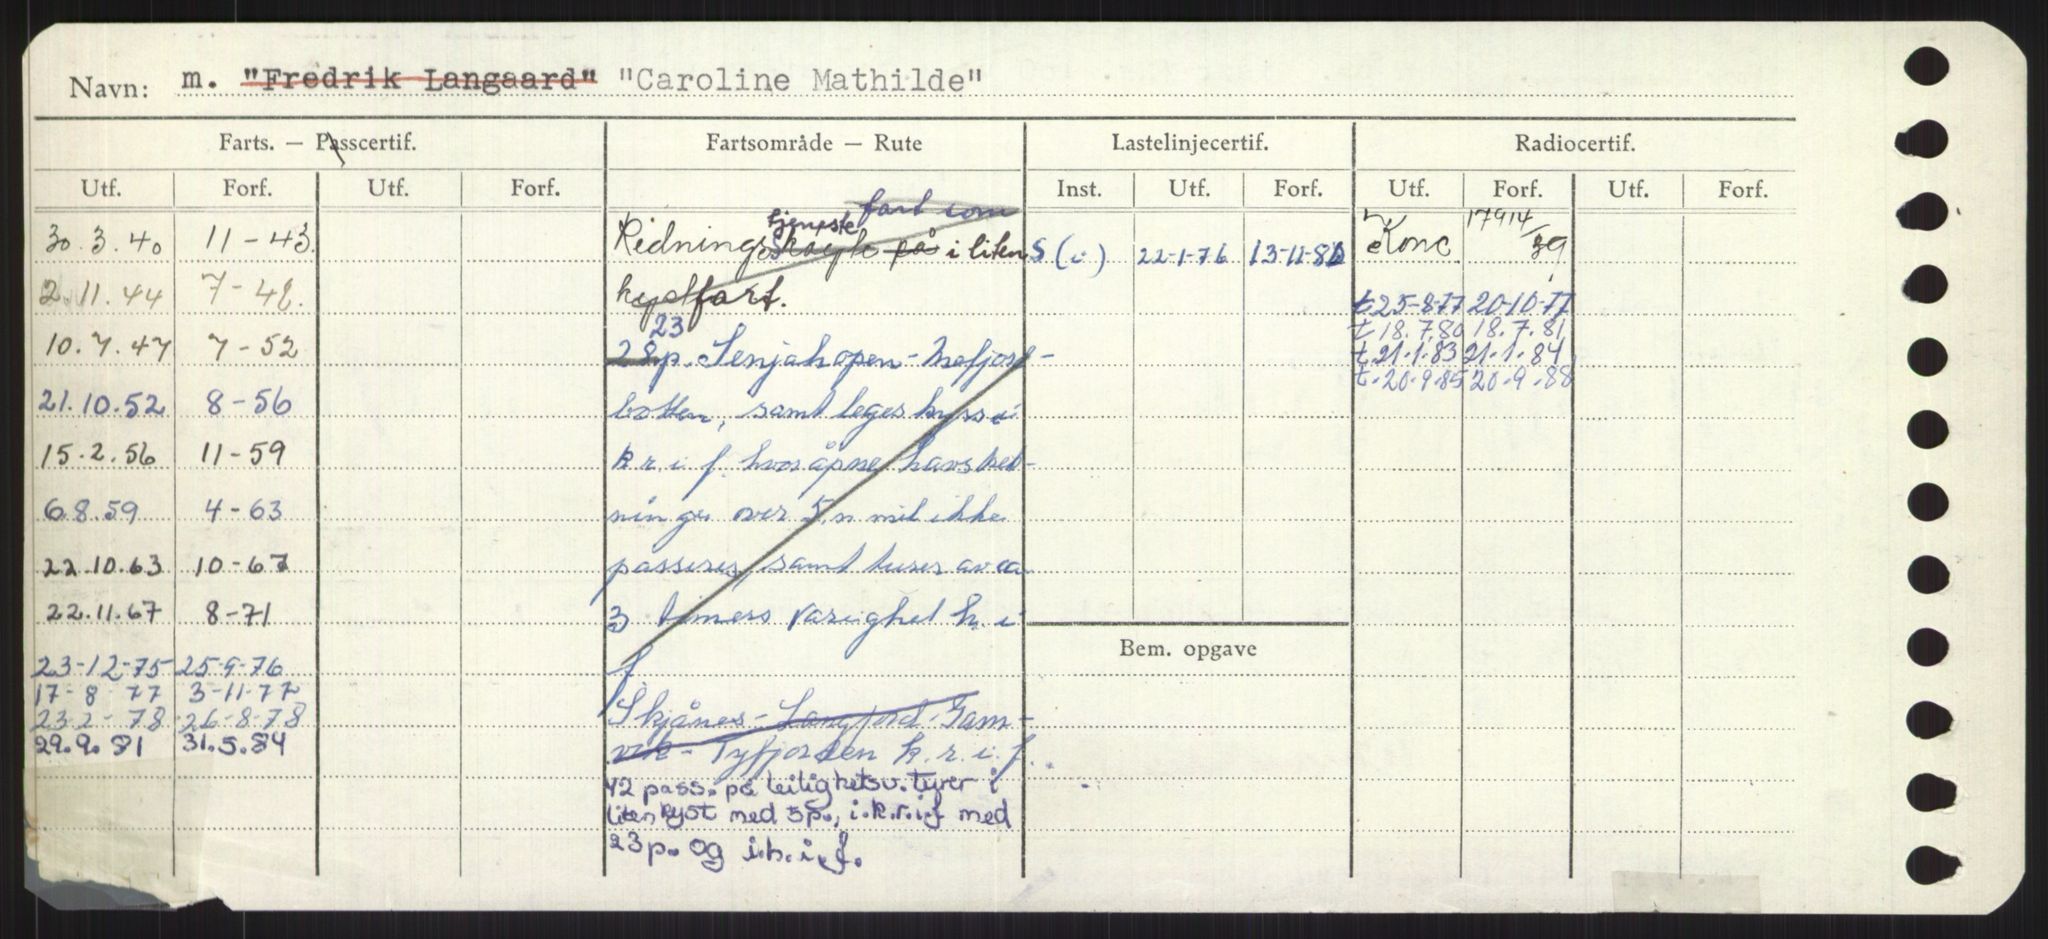 Navn: m. "Fredrik Langaard" "Caroline Mathilde"
Farts. — Passcertif. Fartsområde — Rute Lastelinjecertif. Radiocertif.
Utf. Forf. Utf. Forf. Inst. Utf. Forf. Utf. Forf. Utf. Forf.
fart som
tjeneste
30.3.40 11-43. Rednings på i liten S (i) 22-1-76 13-11-80 Konc. 17914/39
2.11.44 7-48. kystfart. t 25-8-77 20-10-77
23 t 18.7.80 18.7.81
10.7.47 7-52 28 p. Senjahopen - Mefjord- t.21.1.83 21.1.84
t.20.9.85 20.9.88
21.10.52 8-56 botten, samt leges
15.2.56 11-59 k r. i f. hvor åpne havstrek-
6.8.59 4-63 ninger over 5 n mil ikke
22.10.63 10-67 passeres, samt turer av ca
22.11.67 8-71 3 timers varighet h. i
Bem. opgave
23-12-75 25-9-76 f.
17-8-77 3-11-77
23-2-78 26-8-78 Skjånes - Langfjord - Gam-
29.9.81 31.5.84 vik - Tyfjorden k.r.i.f.
42 pass. på leilighetsv. turer i
liten kyst med 5p., i.k.r.i.f med
23p. og i.h.i.f.